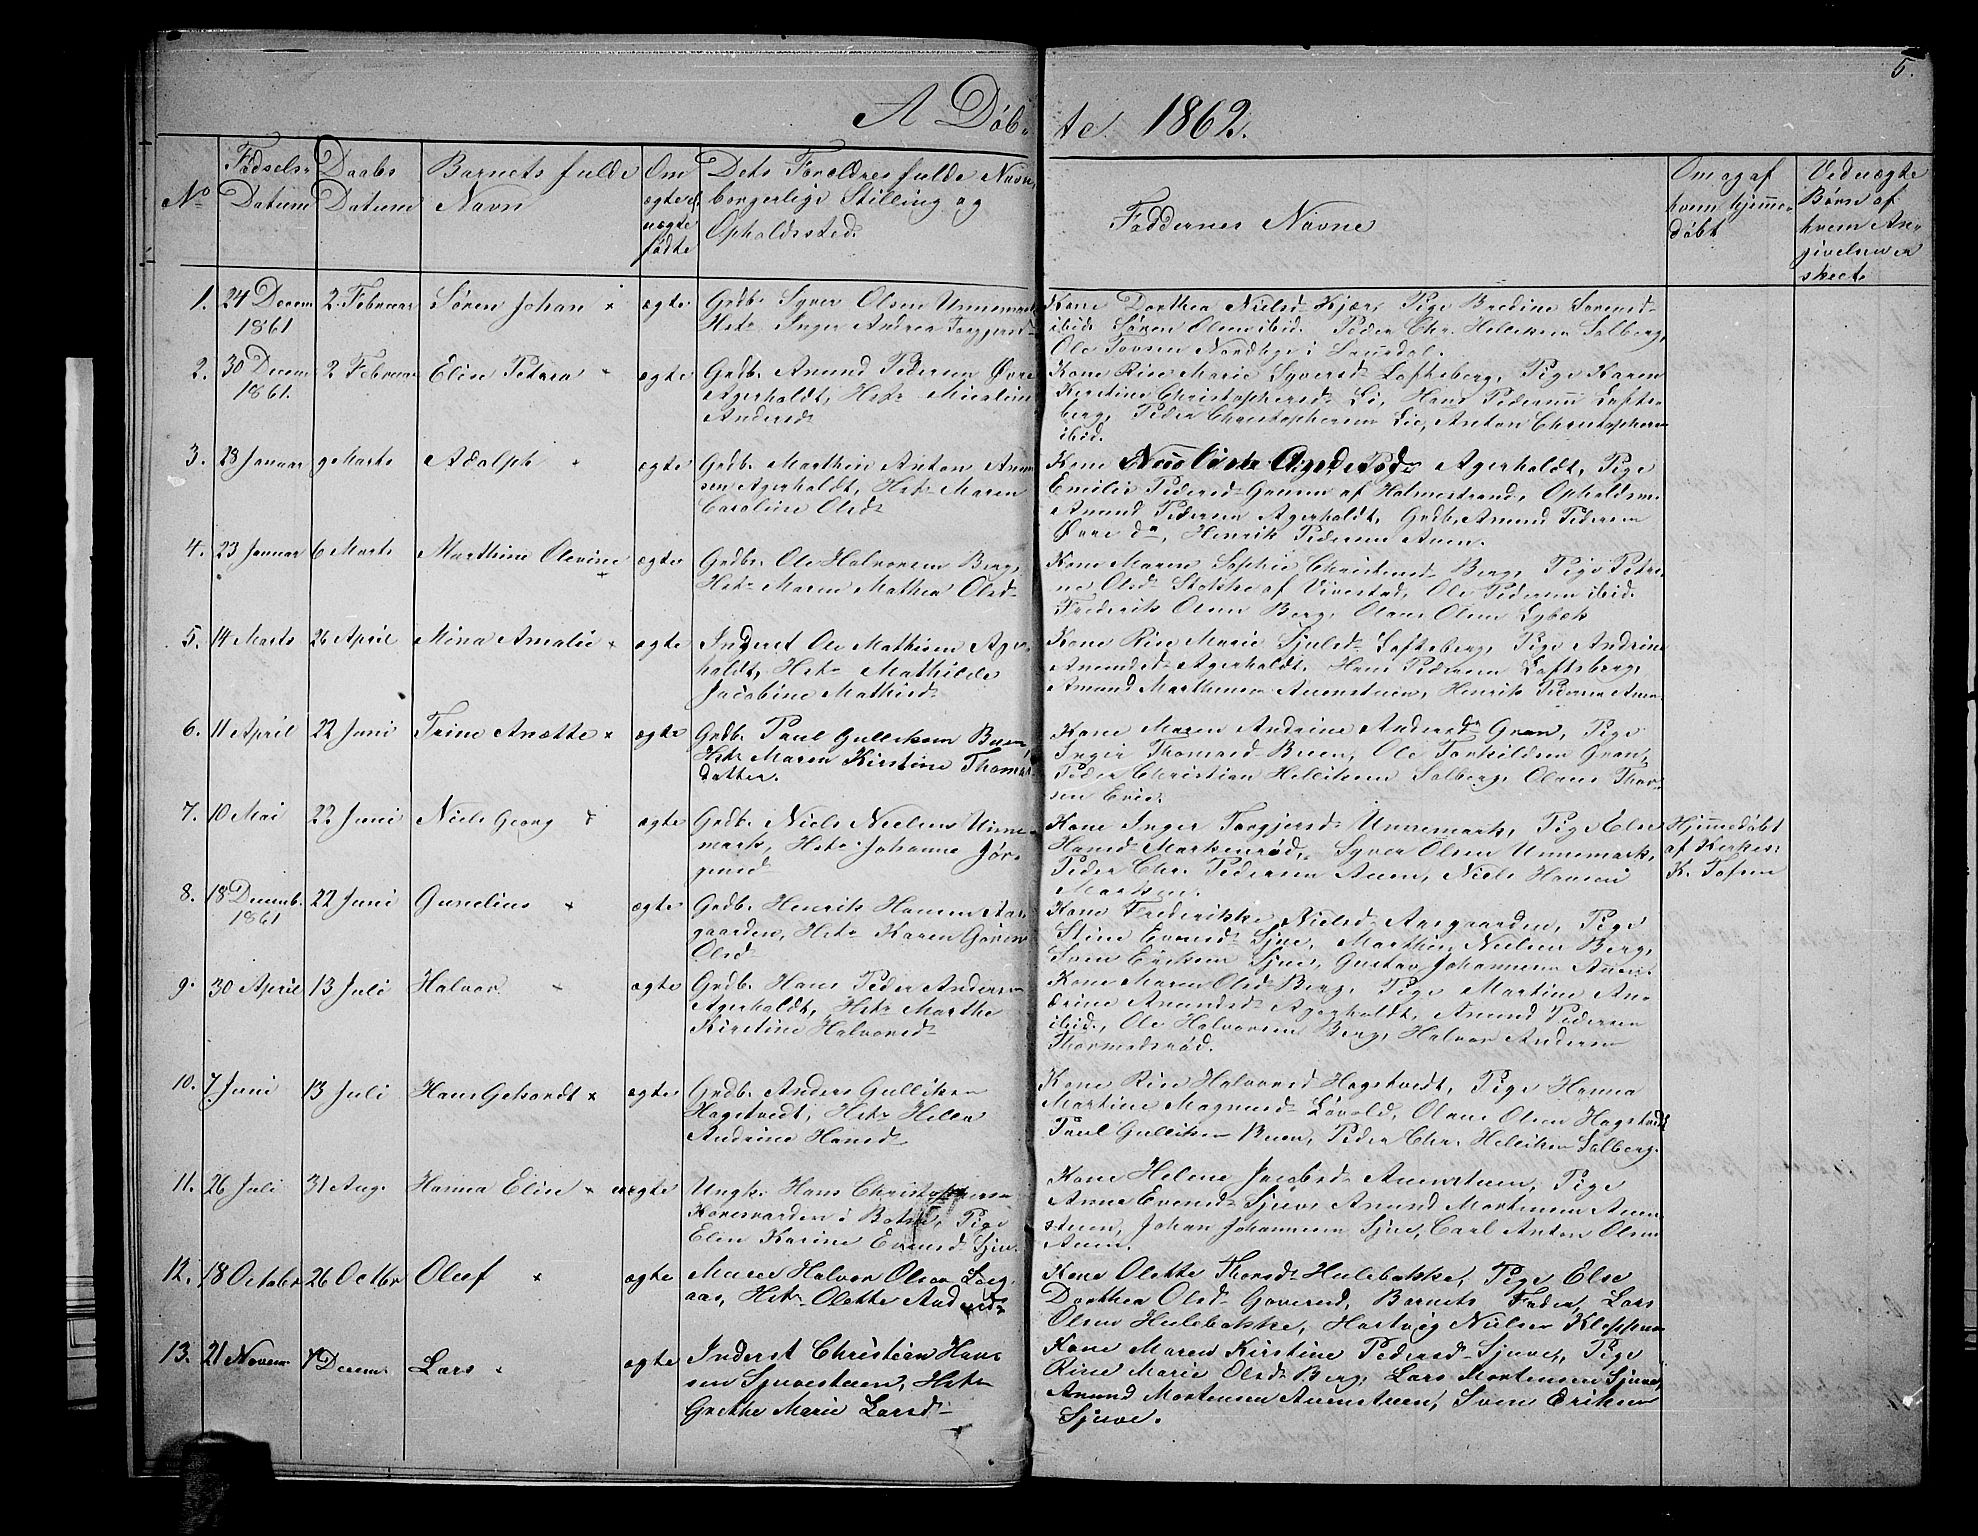 5.
A Döb-
te 1862.
No
Fødsels-
Datum
Daabs
Datum
Barnets fulde
Navn
Om
ægte el.
uægte
fødte
Dets Forældres fulde Navn,
borgerlige Stilling og
Opholdssted.
Faddernes Navne
Om og af
hvem hjemme-
døbt
Ved uægte
Børn af
hvem An-
givelsen er
skeet.
1. 24 Decem 2 Februar Søren Johan × ægte Grdb. Syver Olsen Unnemark
1861 Hst: Inger Andrea Torgjersd.
Kone Dorthea Nielsd. Kjær, Pige Bredine Sørensd.
ibid. Søren Olsen ibid. Peder Chr. Helliksen Solberg,
Ole Torsen Nordhge i
2. 30 Decem 2 Februar Elise Petera × ægte Grdb. Amund Pedersen Øvre
1861. Agerholdt, Hst:
Andersd.
Kone Rise Marie Syversd. Loftsberg, Pige Karen
Kirstine Christophersd. Li, Hans Pedersen Lofts-
berg, Peder Christophersen Lie, Anton Christophersen
ibid.
3. 28 Januar 9 Marts Adolph × ægte Grdb. Marthin Anton Amund-
sen Agerholdt, Hst: Maren
Caroline Olsd.
Kone Andersd. Agerholdt, Pige
Emilie Pedersd. Gousen af Holmestrand, Opholdsm.
Amund Pedersen Agerholdt, Grdb. Amund Pedersen
Øvre do, Henrik Pedersen Auen.
4. 23 Januar 6 Marts Marthine Olevine × ægte Grdb. Ole Halvorsen Berg,
Hst: Maren Mathea Olsd.
Kone Maren Sophie Christensd. Berg, Pige Petri-
ne Olsd. Stokke af Vivestad, Ole Pedersen ibid.
Frederik Olsen Berg, Olaus Olsen Lybæk
5. 14 Marts 26 April Mina Amalie × ægte Inderst Ole Mathisen Ager-
holdt, Hst: Mathilde
Jacobine Mathisd.
Kone Rise Marie Sjulsd. Loftsberg, Pige Andrine
Amundsd. Agerholdt, Hans Pedersen Loftsberg,
Amund Marthinsen Auenstuen, Henrik Pedersen Auen
6. 11 April 22 Juni Trine Anætte × ægte Grdb. Paul Gulliksen Buen,
Hst: Maren Kirstine Thomas-
datter.
Kone Maren Andrine Andersd. Gran, Pige
Inger Thomasd. Buen, Ole Torkildsen Gran,
Peder Christian Helliksen Solberg, Olaus Thor-
sen Evie.
7. 10 Mai 22 Juni Niels Georg × ægte Grdb. Niels Nielsen Unne-
mark, Hst: Johanne Jør-
gensd.
Kone Inger Torgjersd. Unnemark, Pige Else
Hansd. Markenrød, Syver Olsen Unnemark,
Peder Chr. Pedersen Auen, Niels Hansen
Hjemmedøbt
af Kirkes.
K. Tofsen
8. 18 Decemb. 22 Juni Gunelius × ægte Grdb. Henrik Hansen Aas-
1861 gaarden, Hst: Karen
Olsd.
Kone Frederikke Nielsd. Aasgaarden, Pige
Stine Evensd. Sjue, Marthin Nielsen Berg,
Sven Eriksen Sjue, Gustav Johannesen Auen.
9. 30 April 13 Juli Halvor × ægte Grdb. Hans Peder Andersen
Agerholdt, Hst: Marthe
Kirstine Halvorsd.
Kone Maren Olsd. Berg, Pige Martine An-
drine Amundsd. Agerholdt, Amund Pedersen
ibid., Ole Halvorsen Berg, Halvor Andersen
Thormodsrød.
10. 7 Juni 13 Juli Hans Gehardt × ægte Grdb. Anders Gulliksen
Hagstvedt, Hst: Helle
Andrine Hansd.
Kone Rise Halvorsd. Hagstvedt, Pige Hanna
Martine Magnusd. Løvold, Olaus Olsen Hagstvedt
Paul Gulliksen Buen, Peder Chr. Helliksen Solberg.
11. 26 Juli 31 Aug. Hanna Elise × uægte Ungk. Hans Christophersen
i Botne, Pige
Elin Karine Evensd. Sjue.
Kone Helene Jacobsd. Auenstuen, Pige
Anne Evensd. Sjuve Amund Mortensen Auen-
stuen, Johan Johannesen Sjue, Carl Anton Olsen
Auen.
12. 18 Octobr 26 Octbr Oluf × ægte Murer Halvor Olsen
aas, Hst: Olette Andersd.
Kone Olette Thorsd. Hulebakke, Pige Else
Dorthea Olsd. Goverød, Barnets Fader, Lars
Olsen Hulebakke, Hartvig Nielsen Kleppen
13. 21 Novem 7 Decem. Lars × ægte Inderst Christian Han-
sen Sjuvestuen, Hst:
Grethe Marie Larsd.
Kone Maren Kirstine Pedersd. Sjuve, Pige
Rine Marie Olsd. Berg, Lars Mortensen Sjuve,
Amund Mortensen Auenstuen, Sven Eriksen
Sjuve.